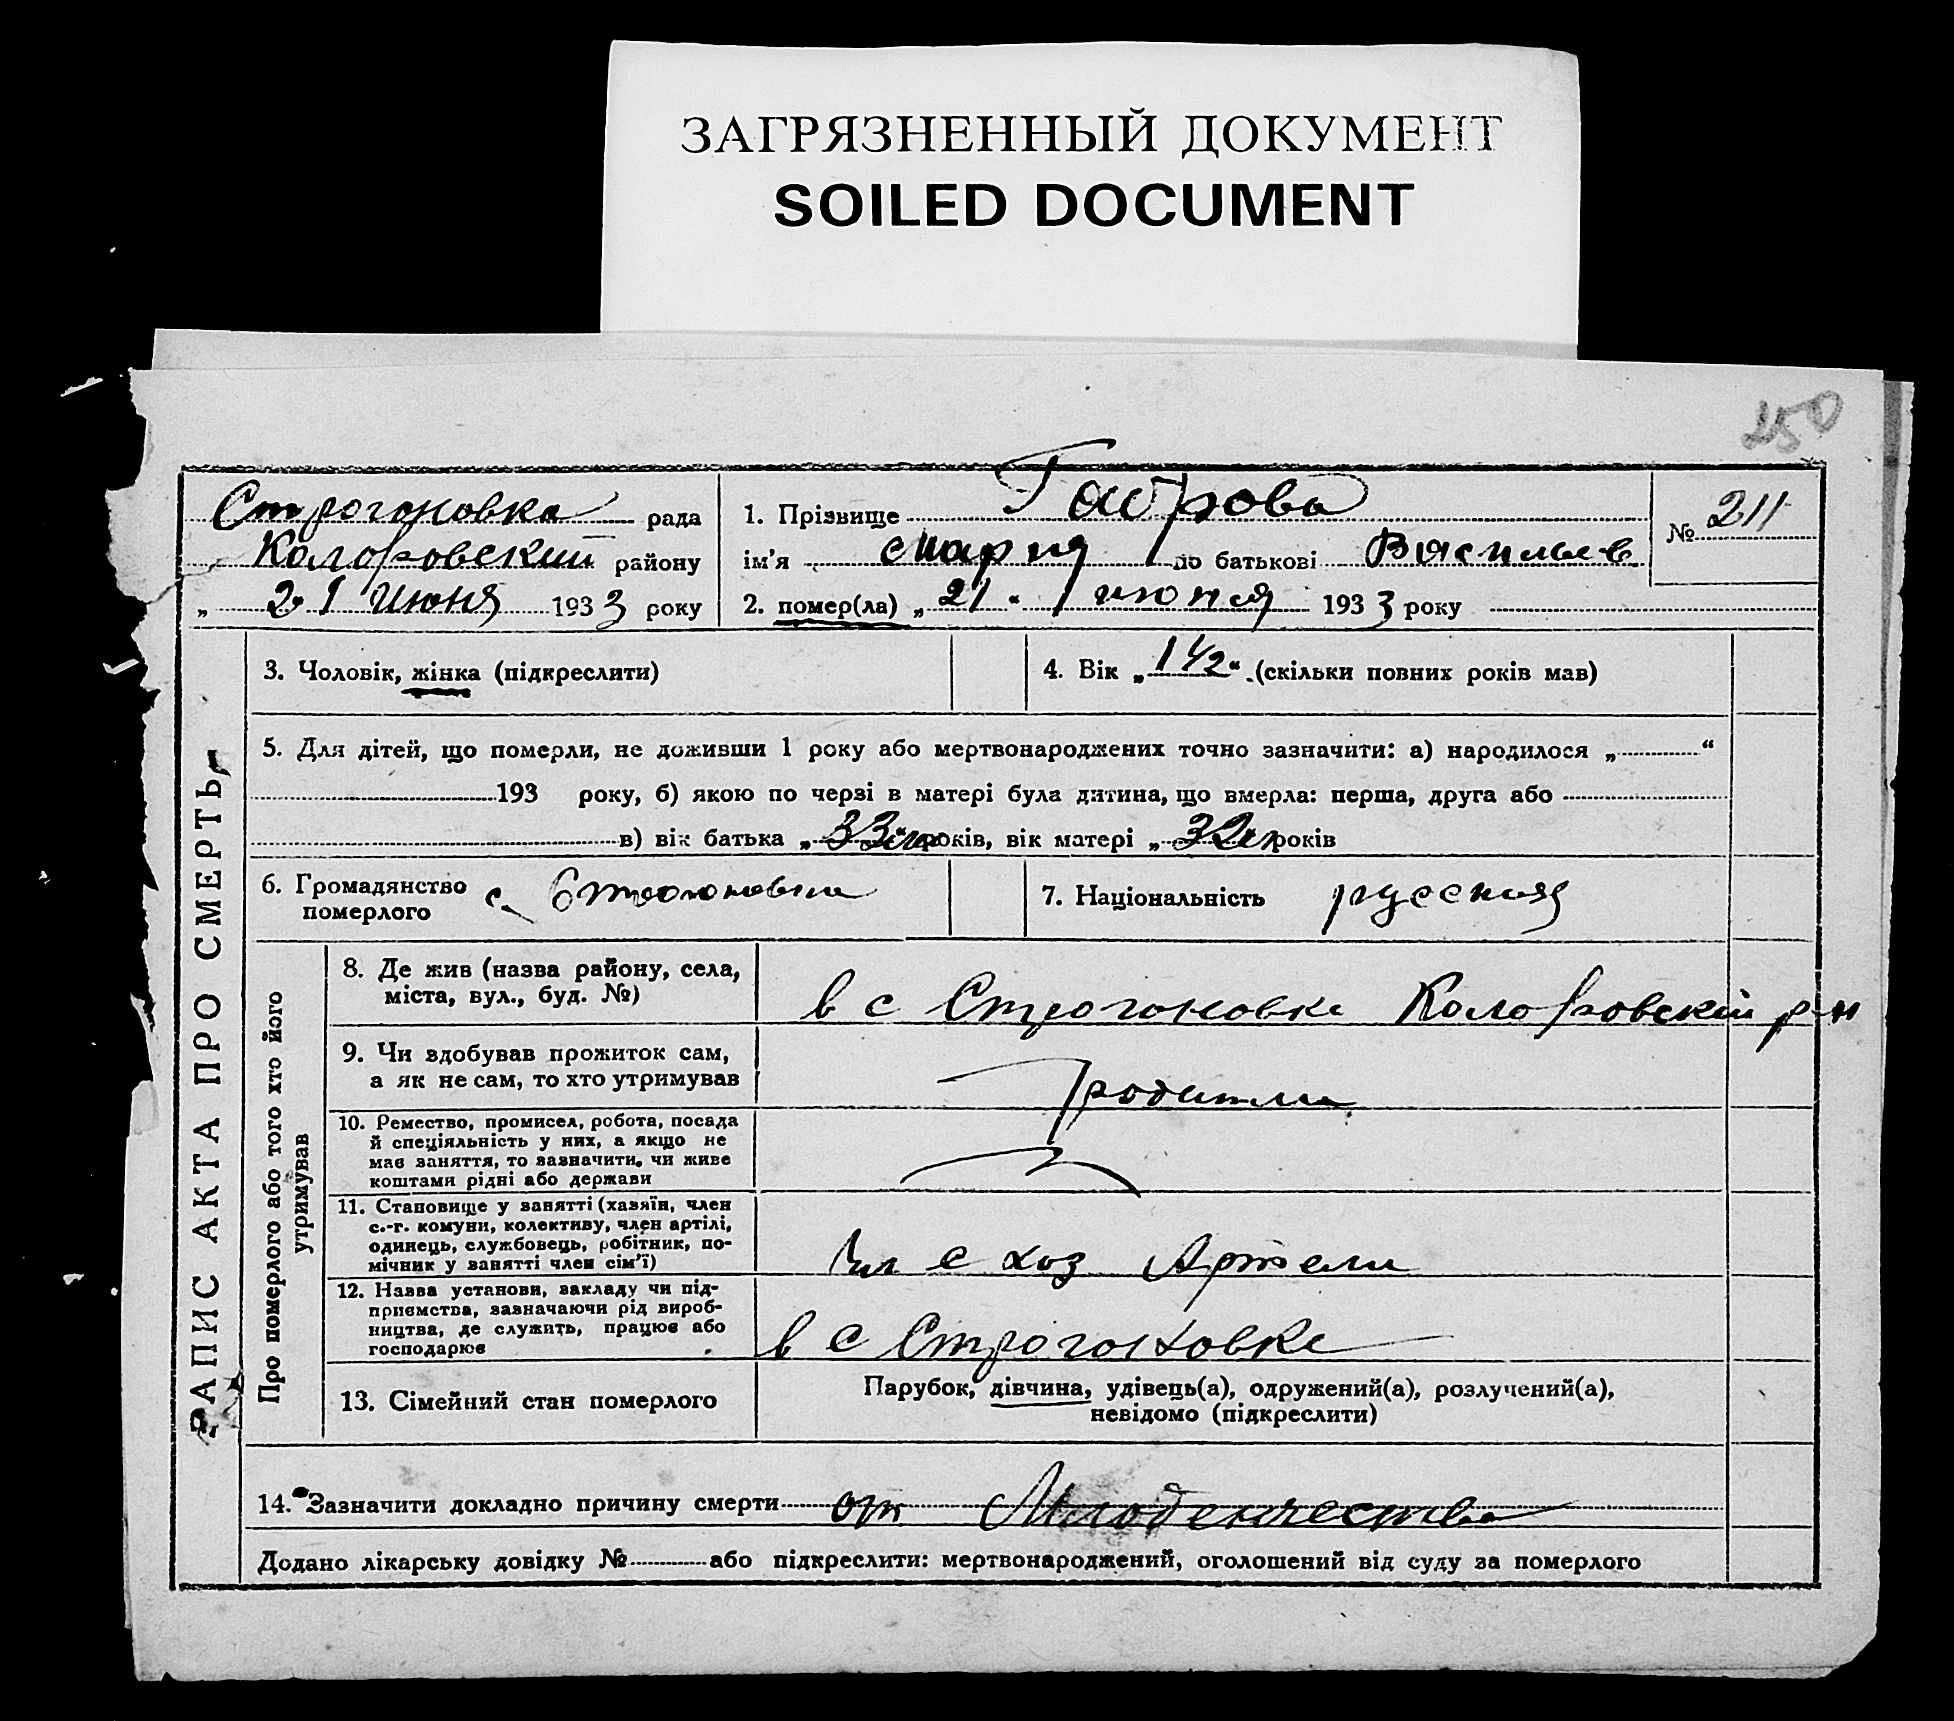 ЗАГРЯЗНЕННЫЙ ДОКУМЕНТ
SOILED DOCUMENT
250
Строгоновка рада
Коларовский району
„ 21 июня 1933 року
1. Прізвище Габрова
ім'я Мария по батькові Васильев
2. помер(ла) „ 21 “ июня 1933 року
№ 211
ЗАПИС АКТА ПРО СМЕРТЬ
3. Чоловік, жінка (підкреслити)
4. Вік „ 1 1/2 “ (скільки повних років мав)
5. Для дітей, що померли, не доживши 1 року або мертвонароджених точно зазначити: а) народилося „ “
193 року, б) якою по черзі в матері була дитина, що вмерла: перша, друга або
в) вік батька „ 33 років, вік матері „ 32 років
6. Громадянство
померлого
с. Строгоновка
7. Національність русская
Про померлого або того хто його
утримував
8. Де жив (назва району, села,
міста, вул., буд. №)
в с Строгоновке Коларовский р-н
9. Чи здобував прожиток сам,
а як не сам, то хто утримував
родители
10. Ремество, промисел, робота, посада
й спеціяльність у них, а якщо не
має заняття, то зазначити, чи живе
коштами рідні або держави
11. Становище у занятті (хазяїн, член
с.-г. комуни, колективу, член артілі,
одинець, службовець, робітник, по-
мічник у занятті член сім'ї)
Чл с хоз Артели
12. Назва установи, закладу чи під-
приємства, зазначаючи рід вироб-
ництва, де служить, працює або
господарює
в с Строгоновке
13. Сімейний стан померлого
Парубок, дівчина, удівець(а), одружений(а), розлучений(а),
невідомо (підкреслити)
14. Зазначити докладно причину смерти от Младенчества
Додано лікарську довідку № або підкреслити: мертвонароджений, оголошений від суду за померлого